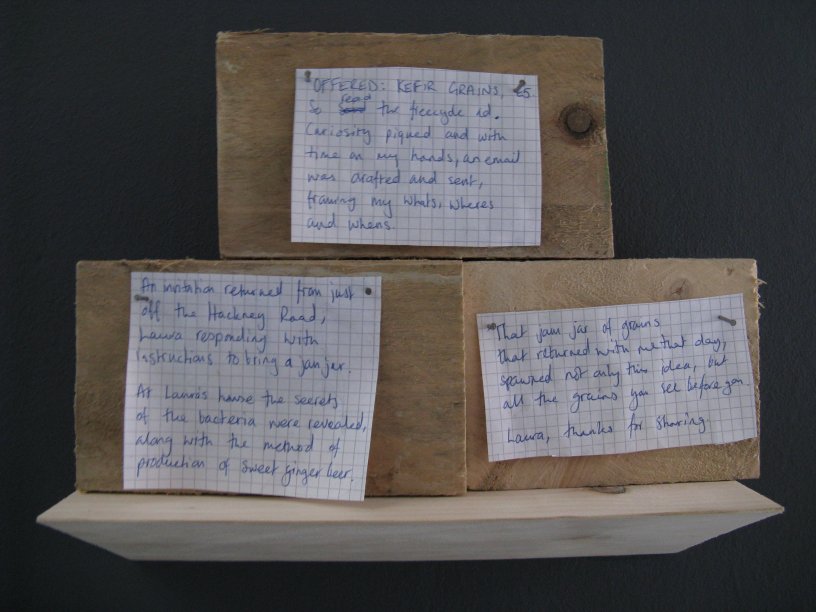 OFFERED: KEFIR GRAINS, E5
So read the freecycle ad.
Curiosity piqued and with
time on my hands, an email
was drafted and sent,
framing my whats, wheres
and whens.
An invitation returned from just
off the Hackney Road,
Laura responding with
instructions to bring a jam jar.
At Laura's house the secrets
of the bacteria were revealed,
along with the method of
production of sweet ginger beer.
That jam jar of grains
that returned with me that day,
spawned not only this idea, but
all the grains you see before you
Laura, thanks for sharing